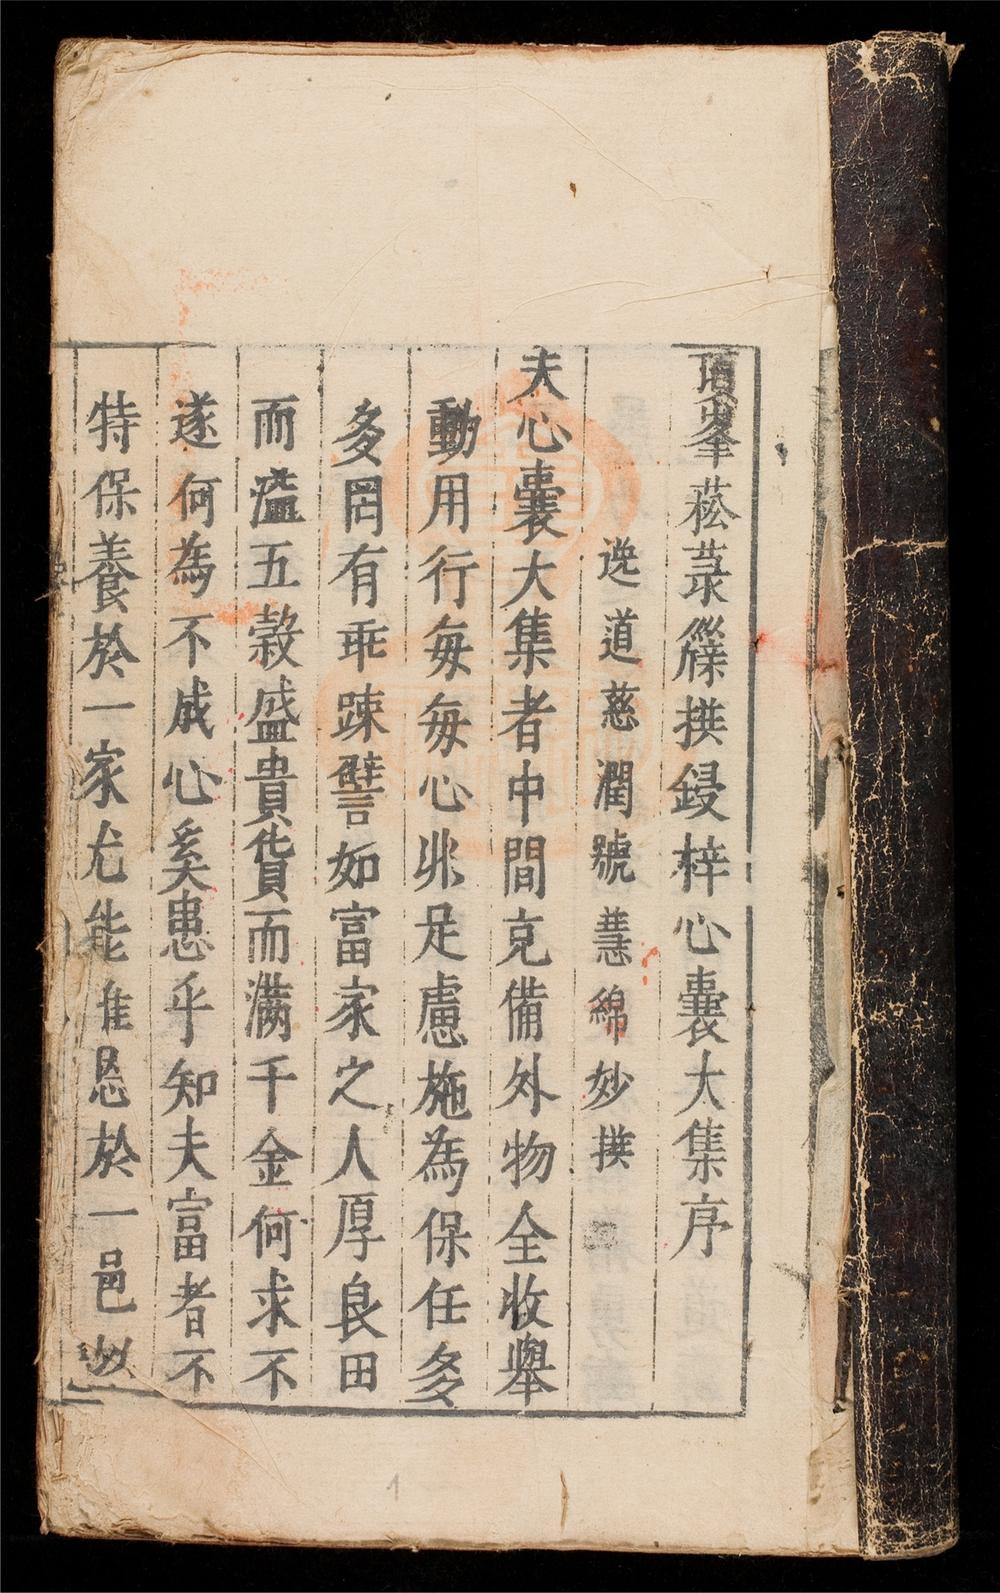 峯菘录篆撰鋟梓心囊大集序
逸道慈潤號慧綿妙撰
夫心囊大集者中間克備外物全收舉
動用行每每心非足慮施為保任多
多罔有乖踈譬如富家之人厚良田
而溢五穀盛貴貨而滿千金何求不
遂何為不成心奚患乎知夫富者不
特保養於一家尤能推恩於一邑
1